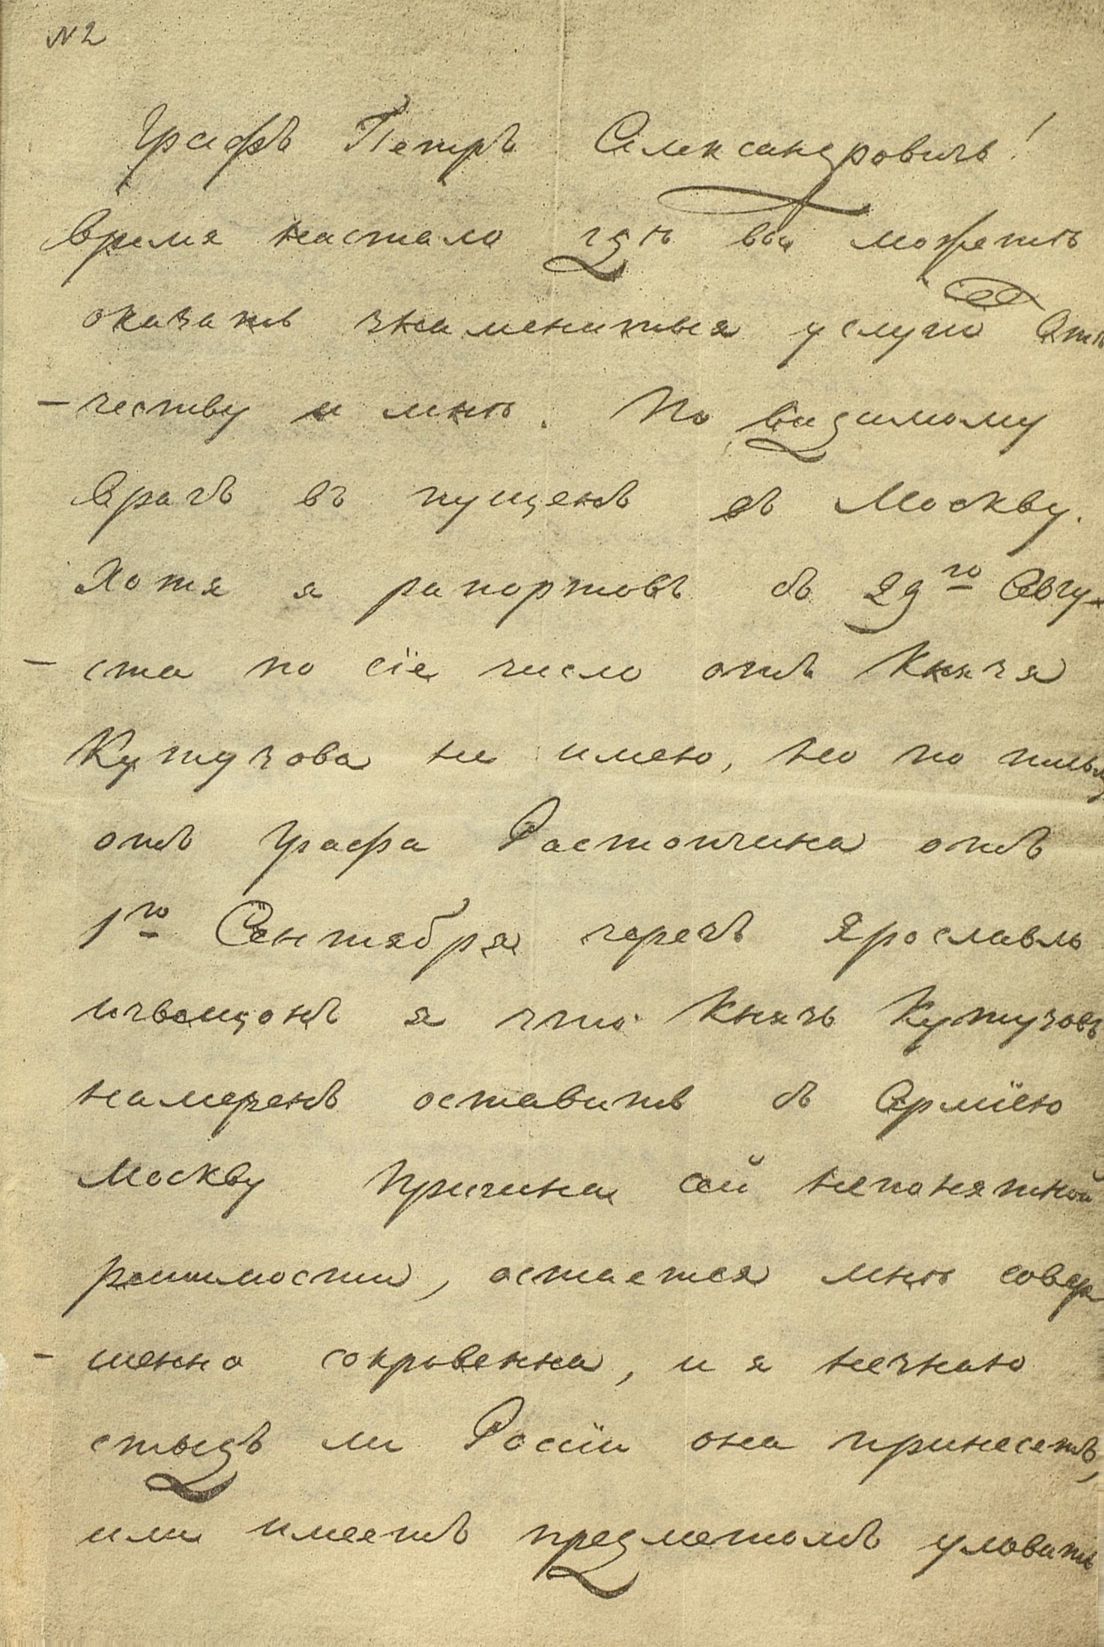 N 2
Графъ Петръ Александровичь!
Время настало гдѣ вы можетѣ
оказать знаменитыя услуги Оте
- честву и мнѣ. По видимому
врагъ въ пущенъ въ Москву.
Хотя я рапортовъ съ 29го Авгу-
- ста по сіе число отъ Князя
Кутузова не имею, но по письму
отъ Графа Растопчина отъ
1го Сентября черезъ Ярославль
извещенъ я что Князь Кутузовъ
намеренъ оставить съ Арміею
Москву Причина сей непонятной
решимости, остается мнѣ совер
- шенно сокровенна, и я незнаю
стыдъ ли Росіи она принесетъ,
или имеетъ предметомъ уловить